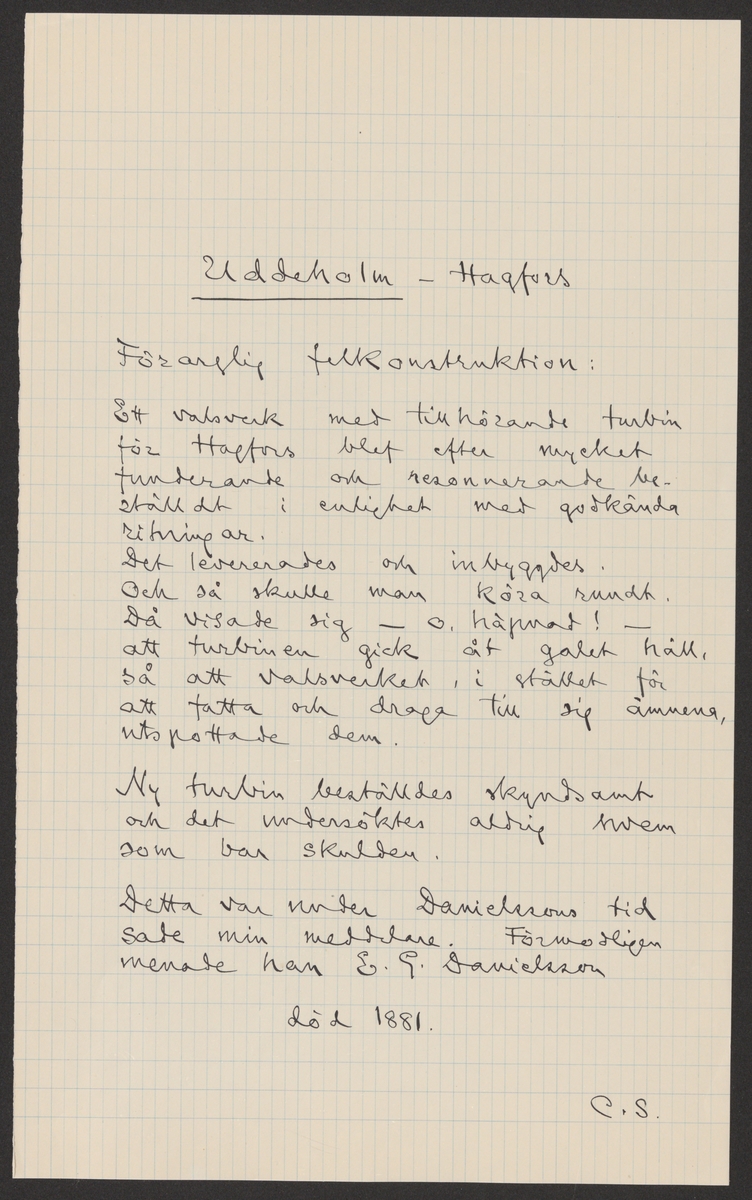 Uddeholm - Hagfors
Förarglig felkonstruktion:
Ett valsverk med tillhörande turbin
för Hagfors blef efter mycket
funderande och resonnerande be-
ställdt i enlighet med godkända
ritningar.
Det levererades och inbyggdes.
Och så skulle man köra rundt.
Då visade sig — o, häpnad! —
att turbinen gick åt galet håll,
så att valsverket, i stället för
att fatta och draga till sig ämnena,
utspottade dem.
Ny turbin beställdes skyndsamt
och det undersöktes aldrig hvem
som bar skulden.
Detta var under Danielssons tid
sade min meddelare. Förmodligen
menade han E. G. Danielsson
död 1881.
C. S.